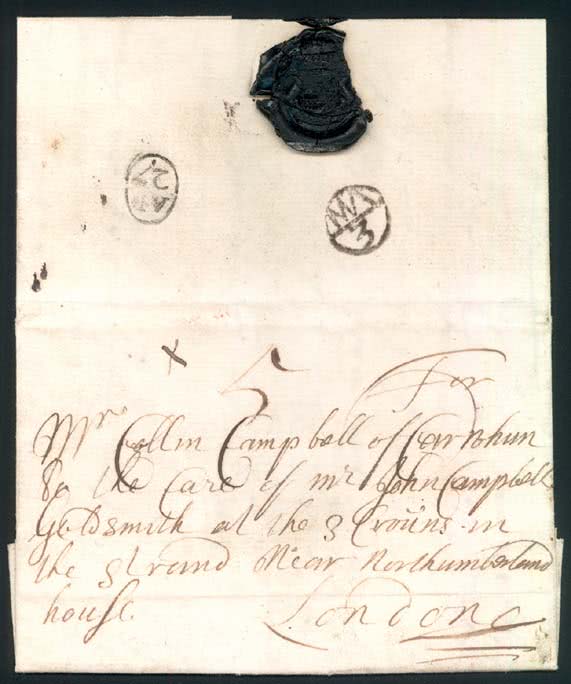 AP 27
MA 3
x 5
For
Mr Collin Campbell of Carwhin
To the Care of mr John Campbell
Goldsmith at the 3 Crouns in
the strand Near Northumberland
house.
London